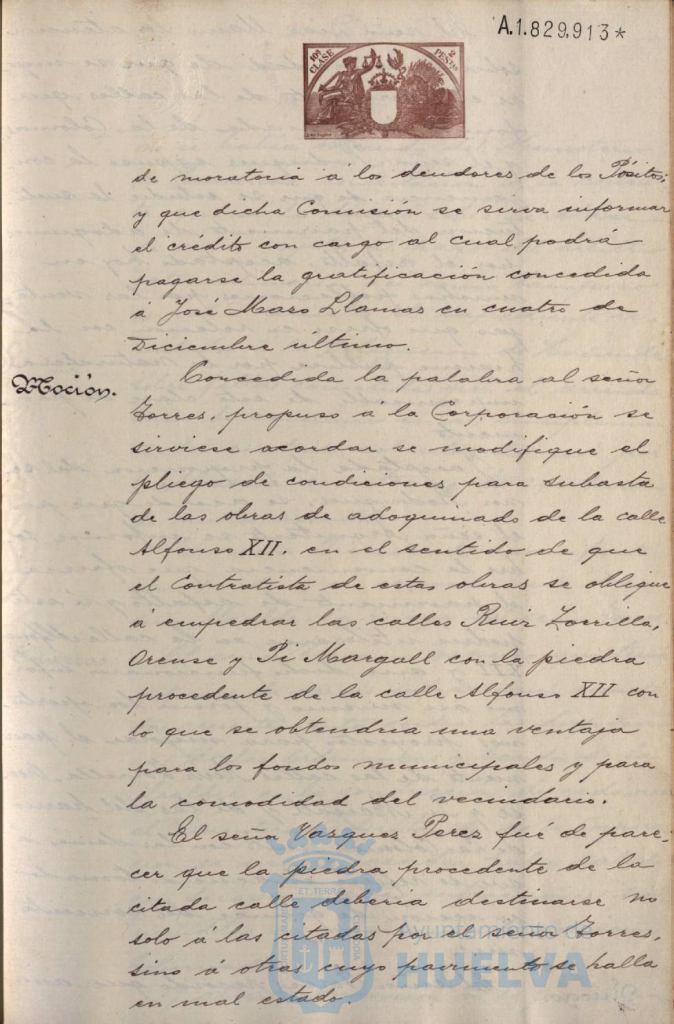 A.1.829.913*
10ª CLASE
2 PESETAS
de moratoria á los deudores de los Pósitos;
y que dicha Comisión se sirva informar
el crédito con cargo al cual podrá
pagarse la gratificación concedida
á José Maso Llamas en cuatro de
Diciembre último.
Moción.
Concedida la palabra al señor
Torres, propuso á la Corporación se
sirviese acordar se modifique el
pliego de condiciones para subasta
de las obras de adoquinado de la calle
Alfonso XII. en el sentido de que
el Contratista de estas obras se obligue
á empedrar las calles Ruiz Zorrilla,
Orense y Pi Margall con la piedra
procedente de la calle Alfonso XII con
lo que se obtendría una ventaja
para los fondos municipales y para
la comodidad del vecindario.
El señor Vazquez Perez fué de pare-
cer que la piedra procedente de la
citada calle deberia destinarse no
solo á las citadas por el señor Torres,
sino á otras cuyo pavimento se halla
en mal estado.
Ayuntamiento de
HUELVA